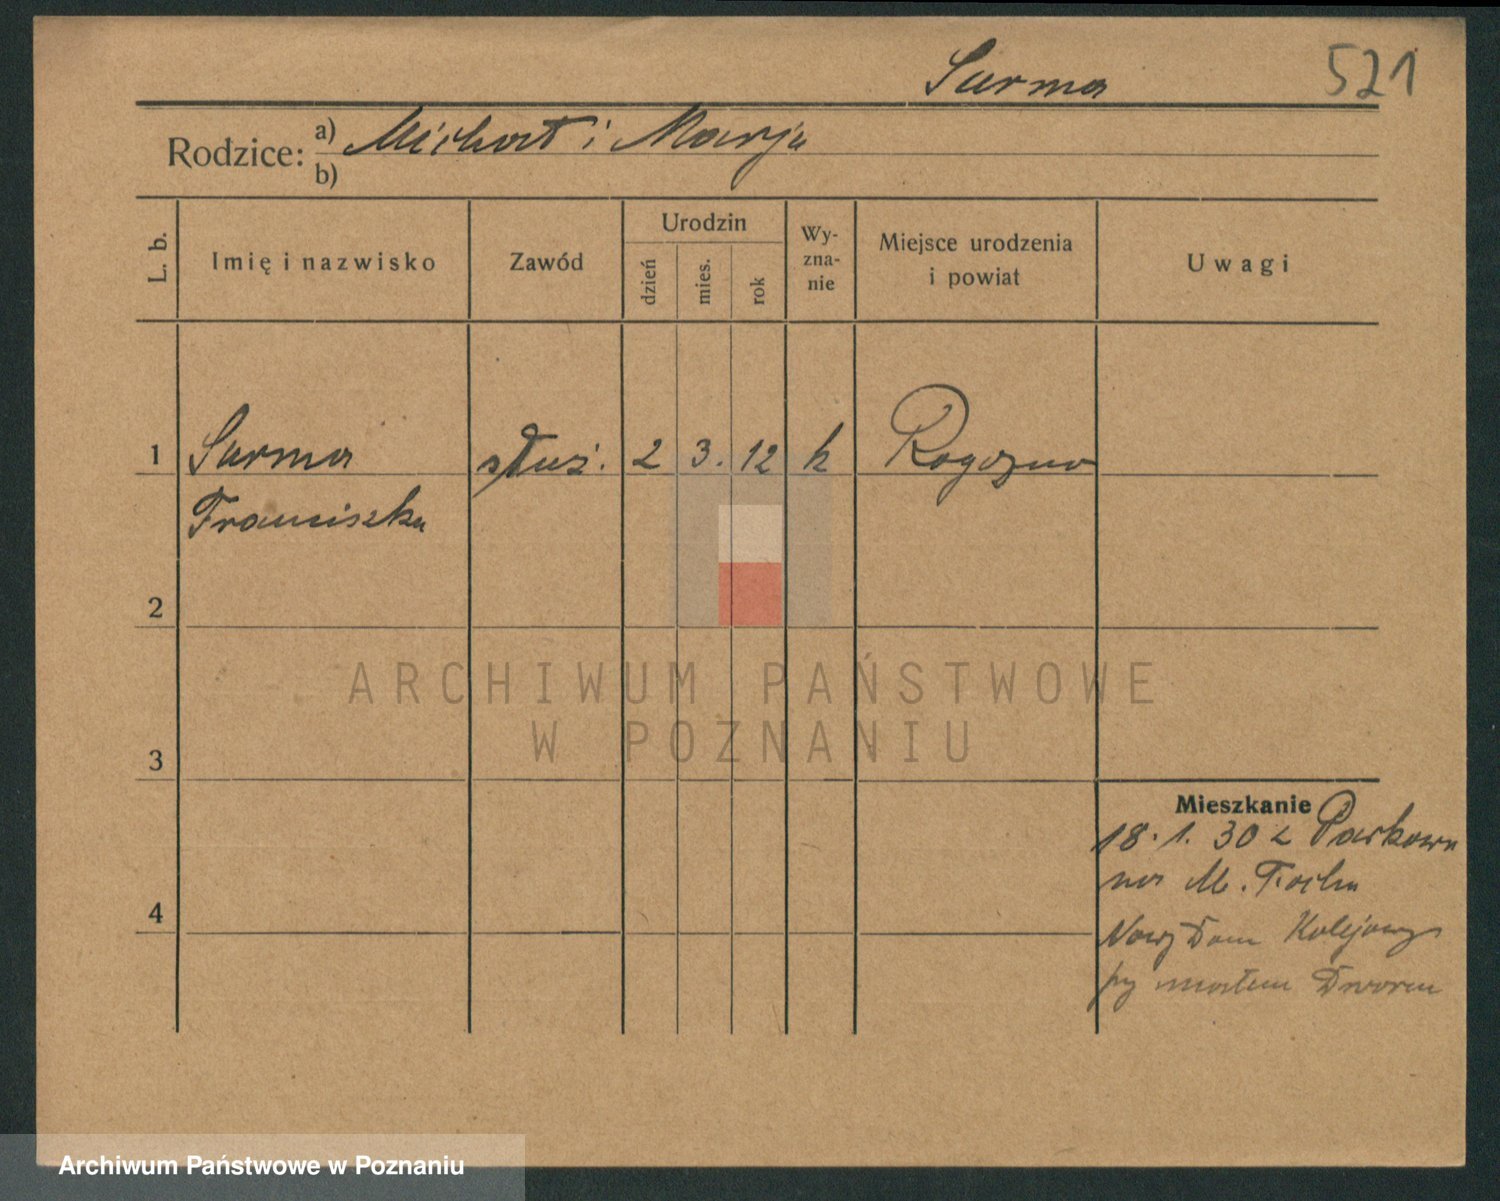 Surma 521
Rodzice: a) Michał i Marja
b)
L. b. Imię i nazwisko Zawód Urodzin dzień mies. rok Wy-zna-nie Miejsce urodzenia i powiat Uwagi
1 Surma służ. 2 3. 12 k Rogozno
Franciszka
2
ARCHIWUM PAŃSTWOWE
W POZNANIU
3
Mieszkanie
18. 1. 30 z Parkowa
na M.
4
Nowy Dom Kolejowy
Archiwum Państwowe w Poznaniu